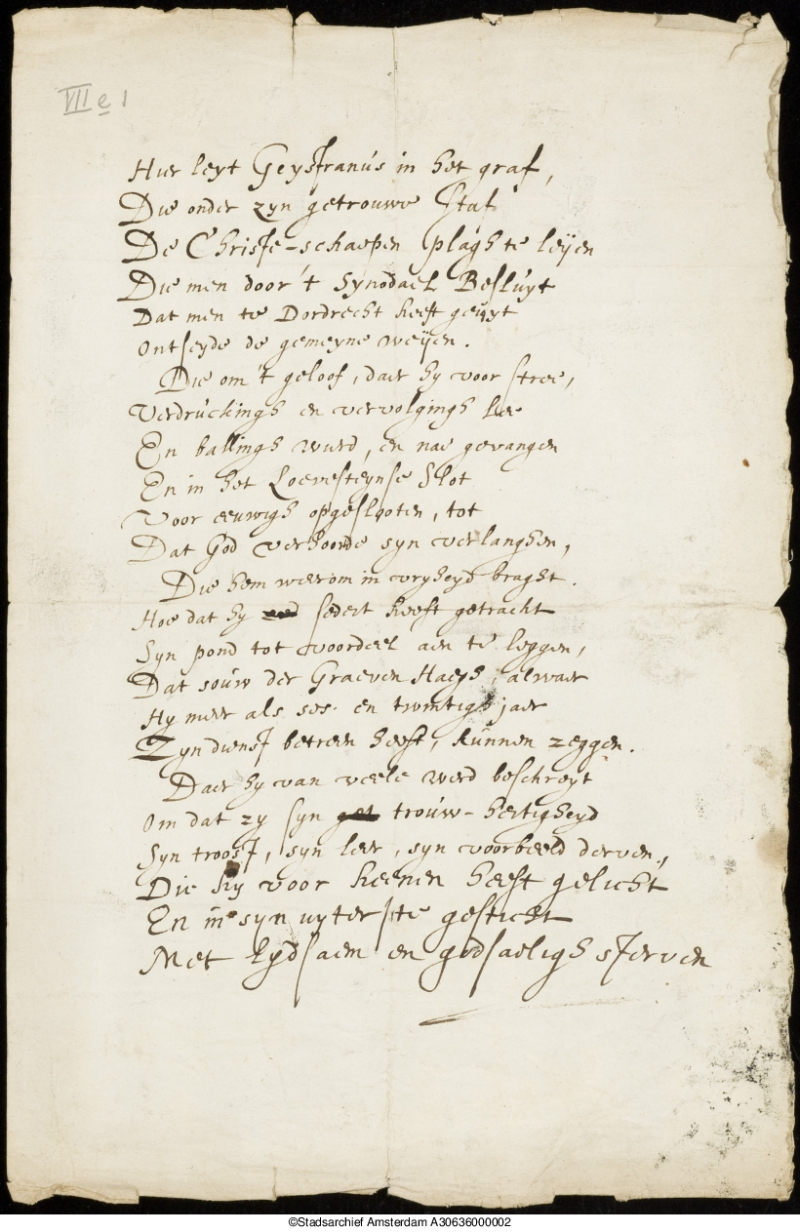 VII e 1
Hier leyt Geysfranus in het graf,
Die onder zyn getrouwe staf
De Christe-schaepen plagh te leijen
Die men door 't Synodael Besluyt
Dat men te Dordrecht heeft geuyt
Ontseyde de gemeyne weijen.
Die om 't geloof, daer hy voor stree,
Verdruckingh en vervolgingh lee
En ballingh wierd, en nae gevangen
En in het Loevesteynse Slot
Voor eeuwigh opgeslooten, tot
Dat God verhoorde syn verlanghen,
Die hem weerom in vryheyd braght.
Hoe dat hy sedert heeft getracht
Syn pond tot voordeel aen te leggen,
Dat souw der Graeven Haegh, alwaer
Hy meer als ses en twintigh jaer
Zyn dienst betreen heeft, kunnen zeggen.
Daer hy van veele werd beschreyt
Om dat zy syn trouw-hertigheyd
Syn troost, syn leer, syn voorbeeld derven,
Die hy voor heenen heeft gelicht
En in syn uyterste gesticht
Met lydsaem en godsaeligh sterven
©Stadsarchief Amsterdam A30636000002